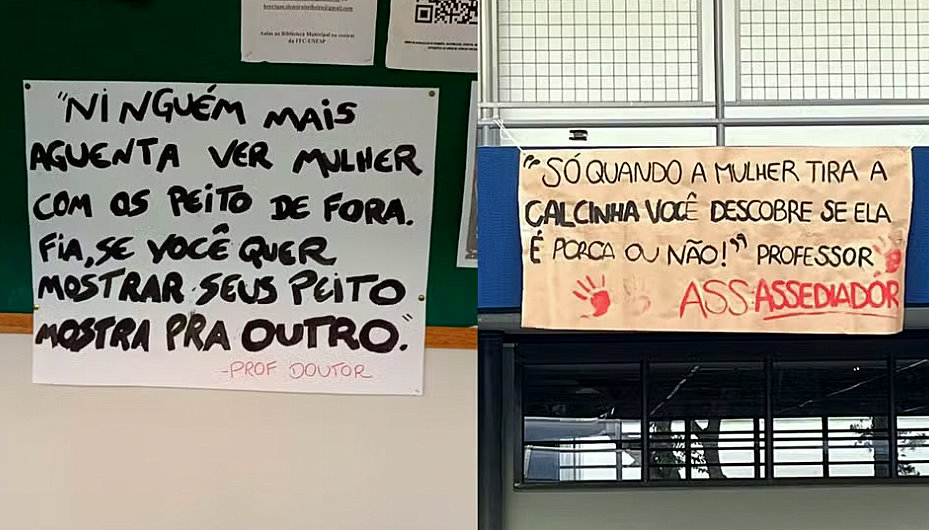 henrique.demoralribeiro@gmail.com
Aulas na Biblioteca Municipal no centro
da FFC-UNESP
"NINGUÉM MAIS
AGUENTA VER MULHER
COM OS PEITO DE FORA.
FIA, SE VOCÊ QUER
MOSTRAR SEUS PEITO
MOSTRA PRA OUTRO."
-PROF DOUTOR
"SÓ QUANDO A MULHER TIRA A
CALCINHA VOCÊ DESCOBRE SE ELA
É PORCA OU NÃO!" PROFESSOR
ASS: ASSEDIADOR